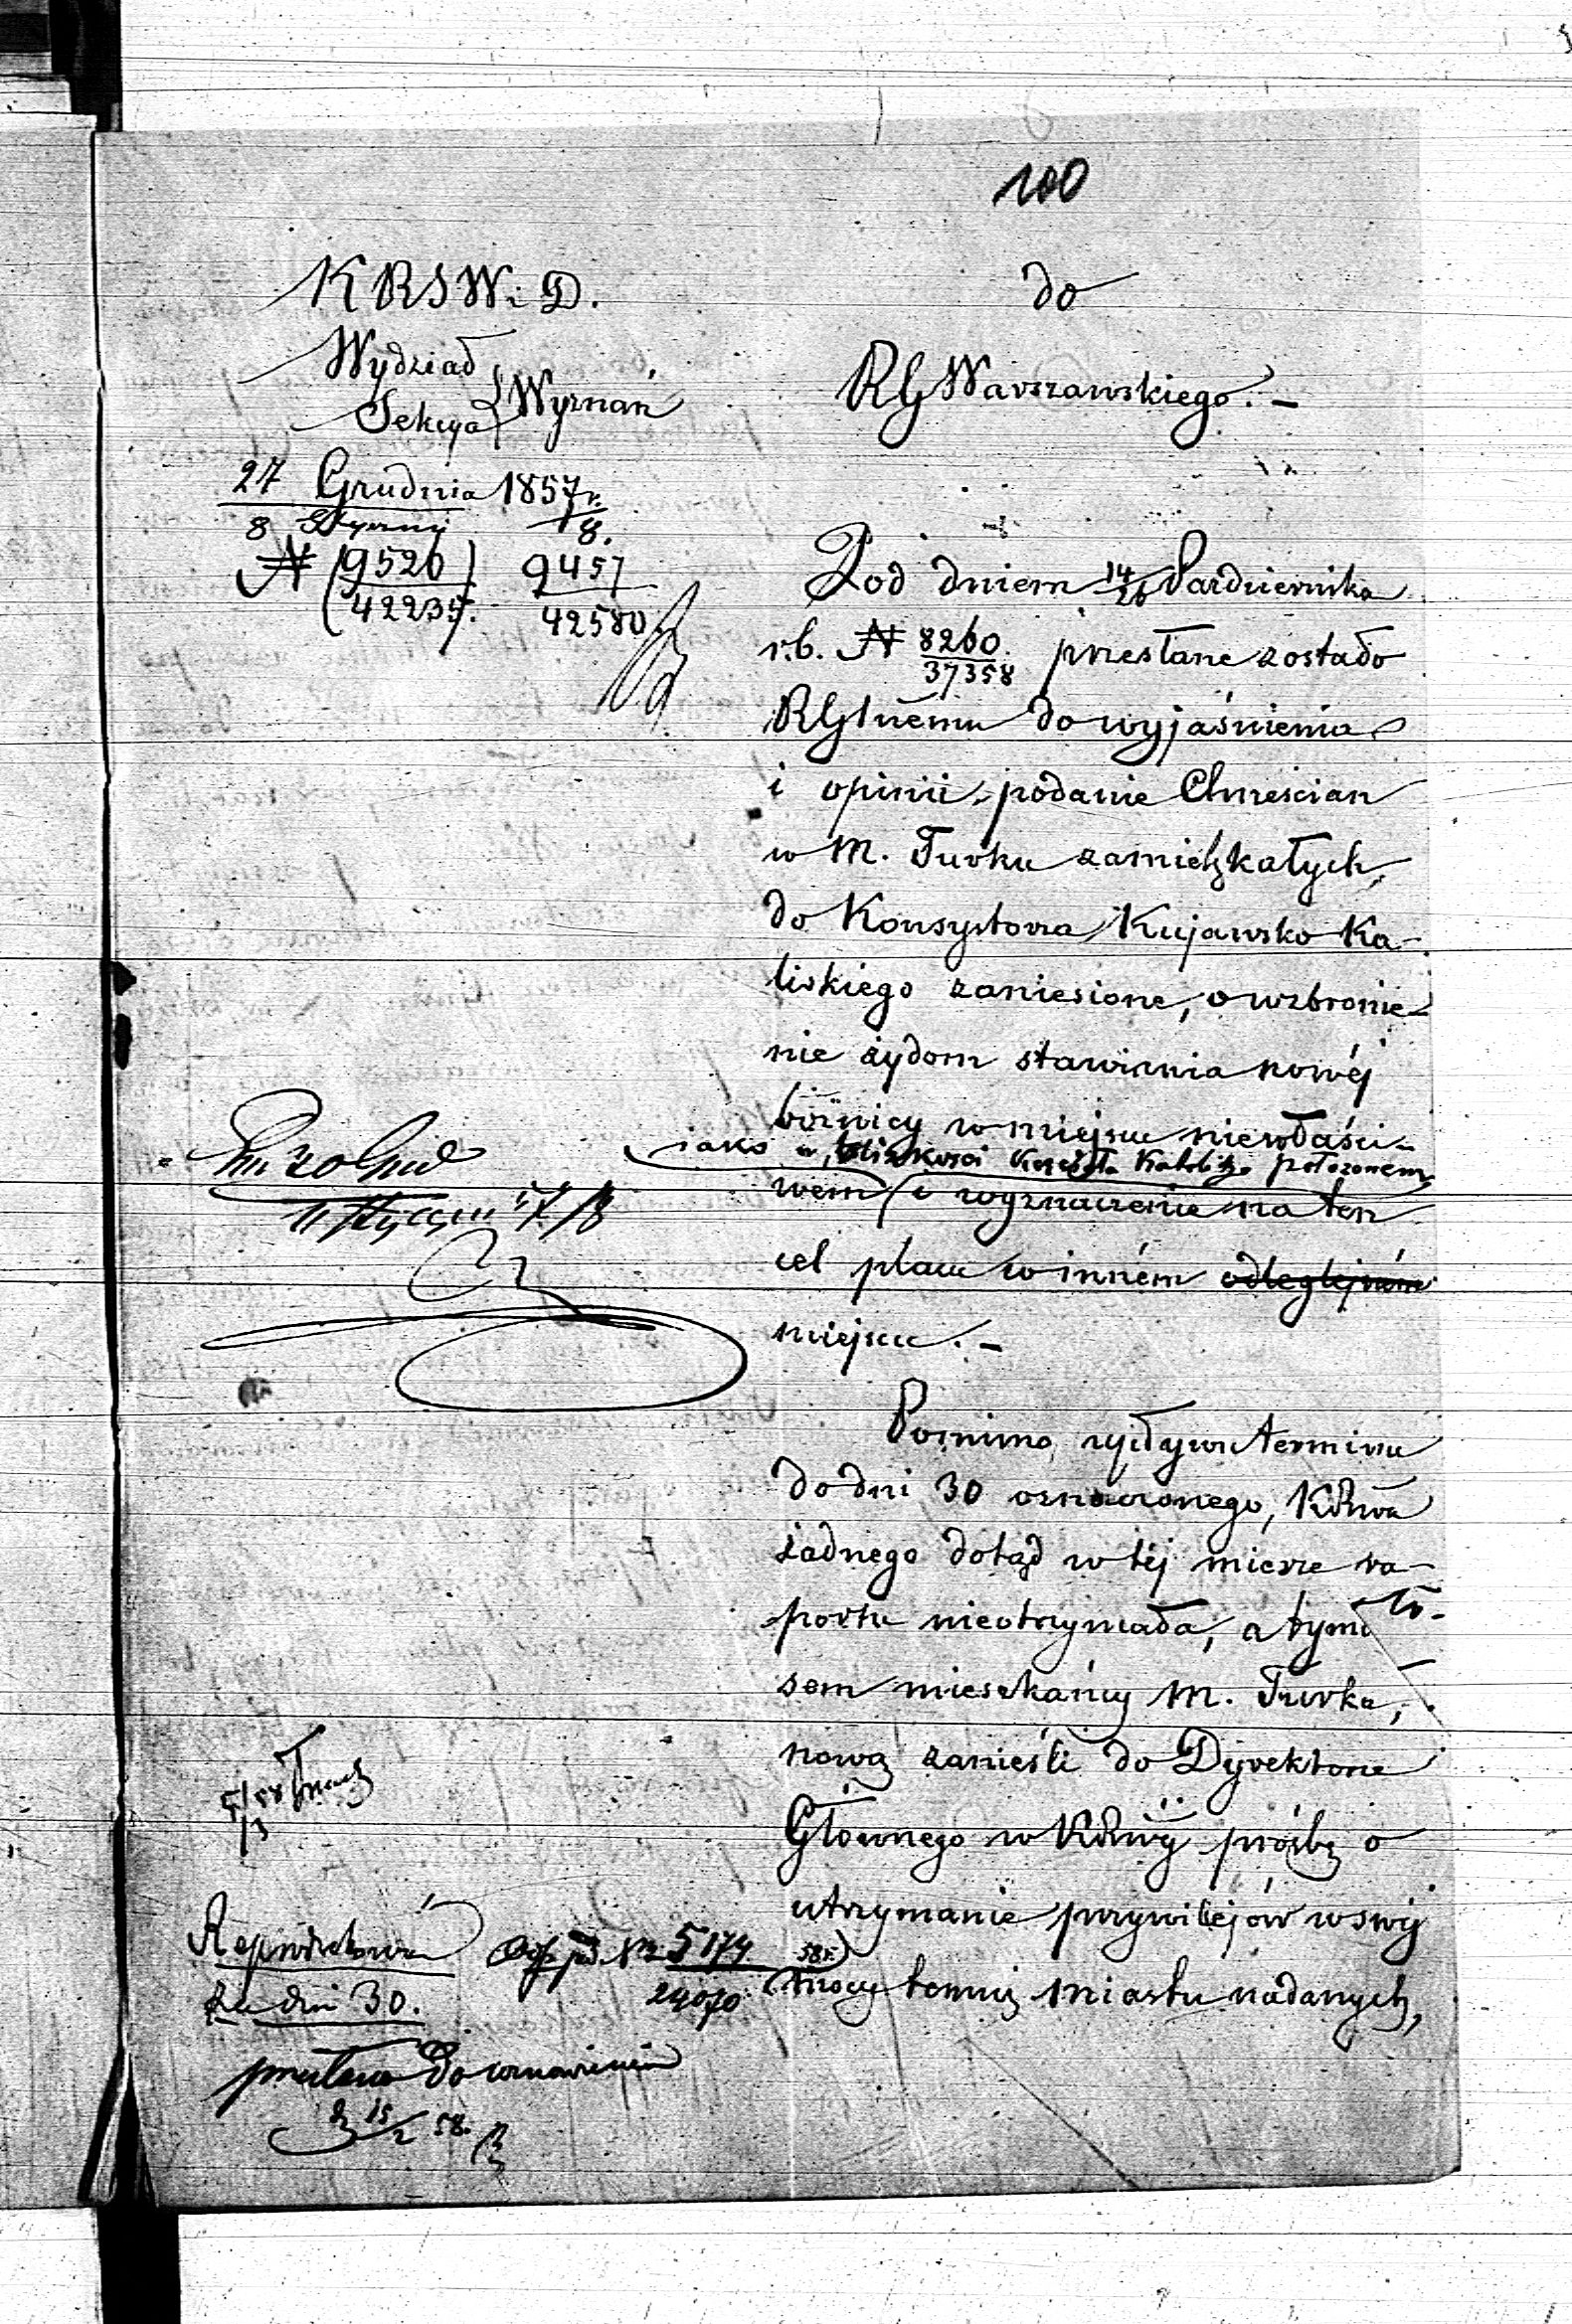 100
KRSW i D.
Wydział
Sekcya } Wyznań
27 Grudnia 1857 r.
8 Stycznia /8.
№ (9526/42235). 9457/42580
do
RG Warszawskiego. –
Pod dniem 14/26 Pazdziernika
r.b. № 8260/37358 przesłane zostało
RGlnemu do wyjaśnienia
i opinii, podanie Chrześcian
w M. Turku zamieszkałych,
do Konsystorza Kujawsko Ka-
liskiego zaniesione, o wzbronie-
nie żydom stawiania nowéj
bóżnicy w miejscu niewłaści-
jako w bliskości Kościoła Katolickgo położonem
wem i wyznaczenie na ten
cel placu w inném odleglejszém
miejscu. –
Pomimo upływu terminu
do dni 30 oznaczonego, KRwa
żadnego dotąd w téj mierze ra-
portu nieotrzymała, a tymcza-
sem mieszkańcy M. Turka,
nową zanieśli do Dyrektora
Głównego w KRwéj prośbę o
utrzymanie przywilejów w swéj
mocy temuż miastu nadanych,
Reprodukować
za dni 30.
Odp. pod № 5174/24070 58r.
15/2 58.